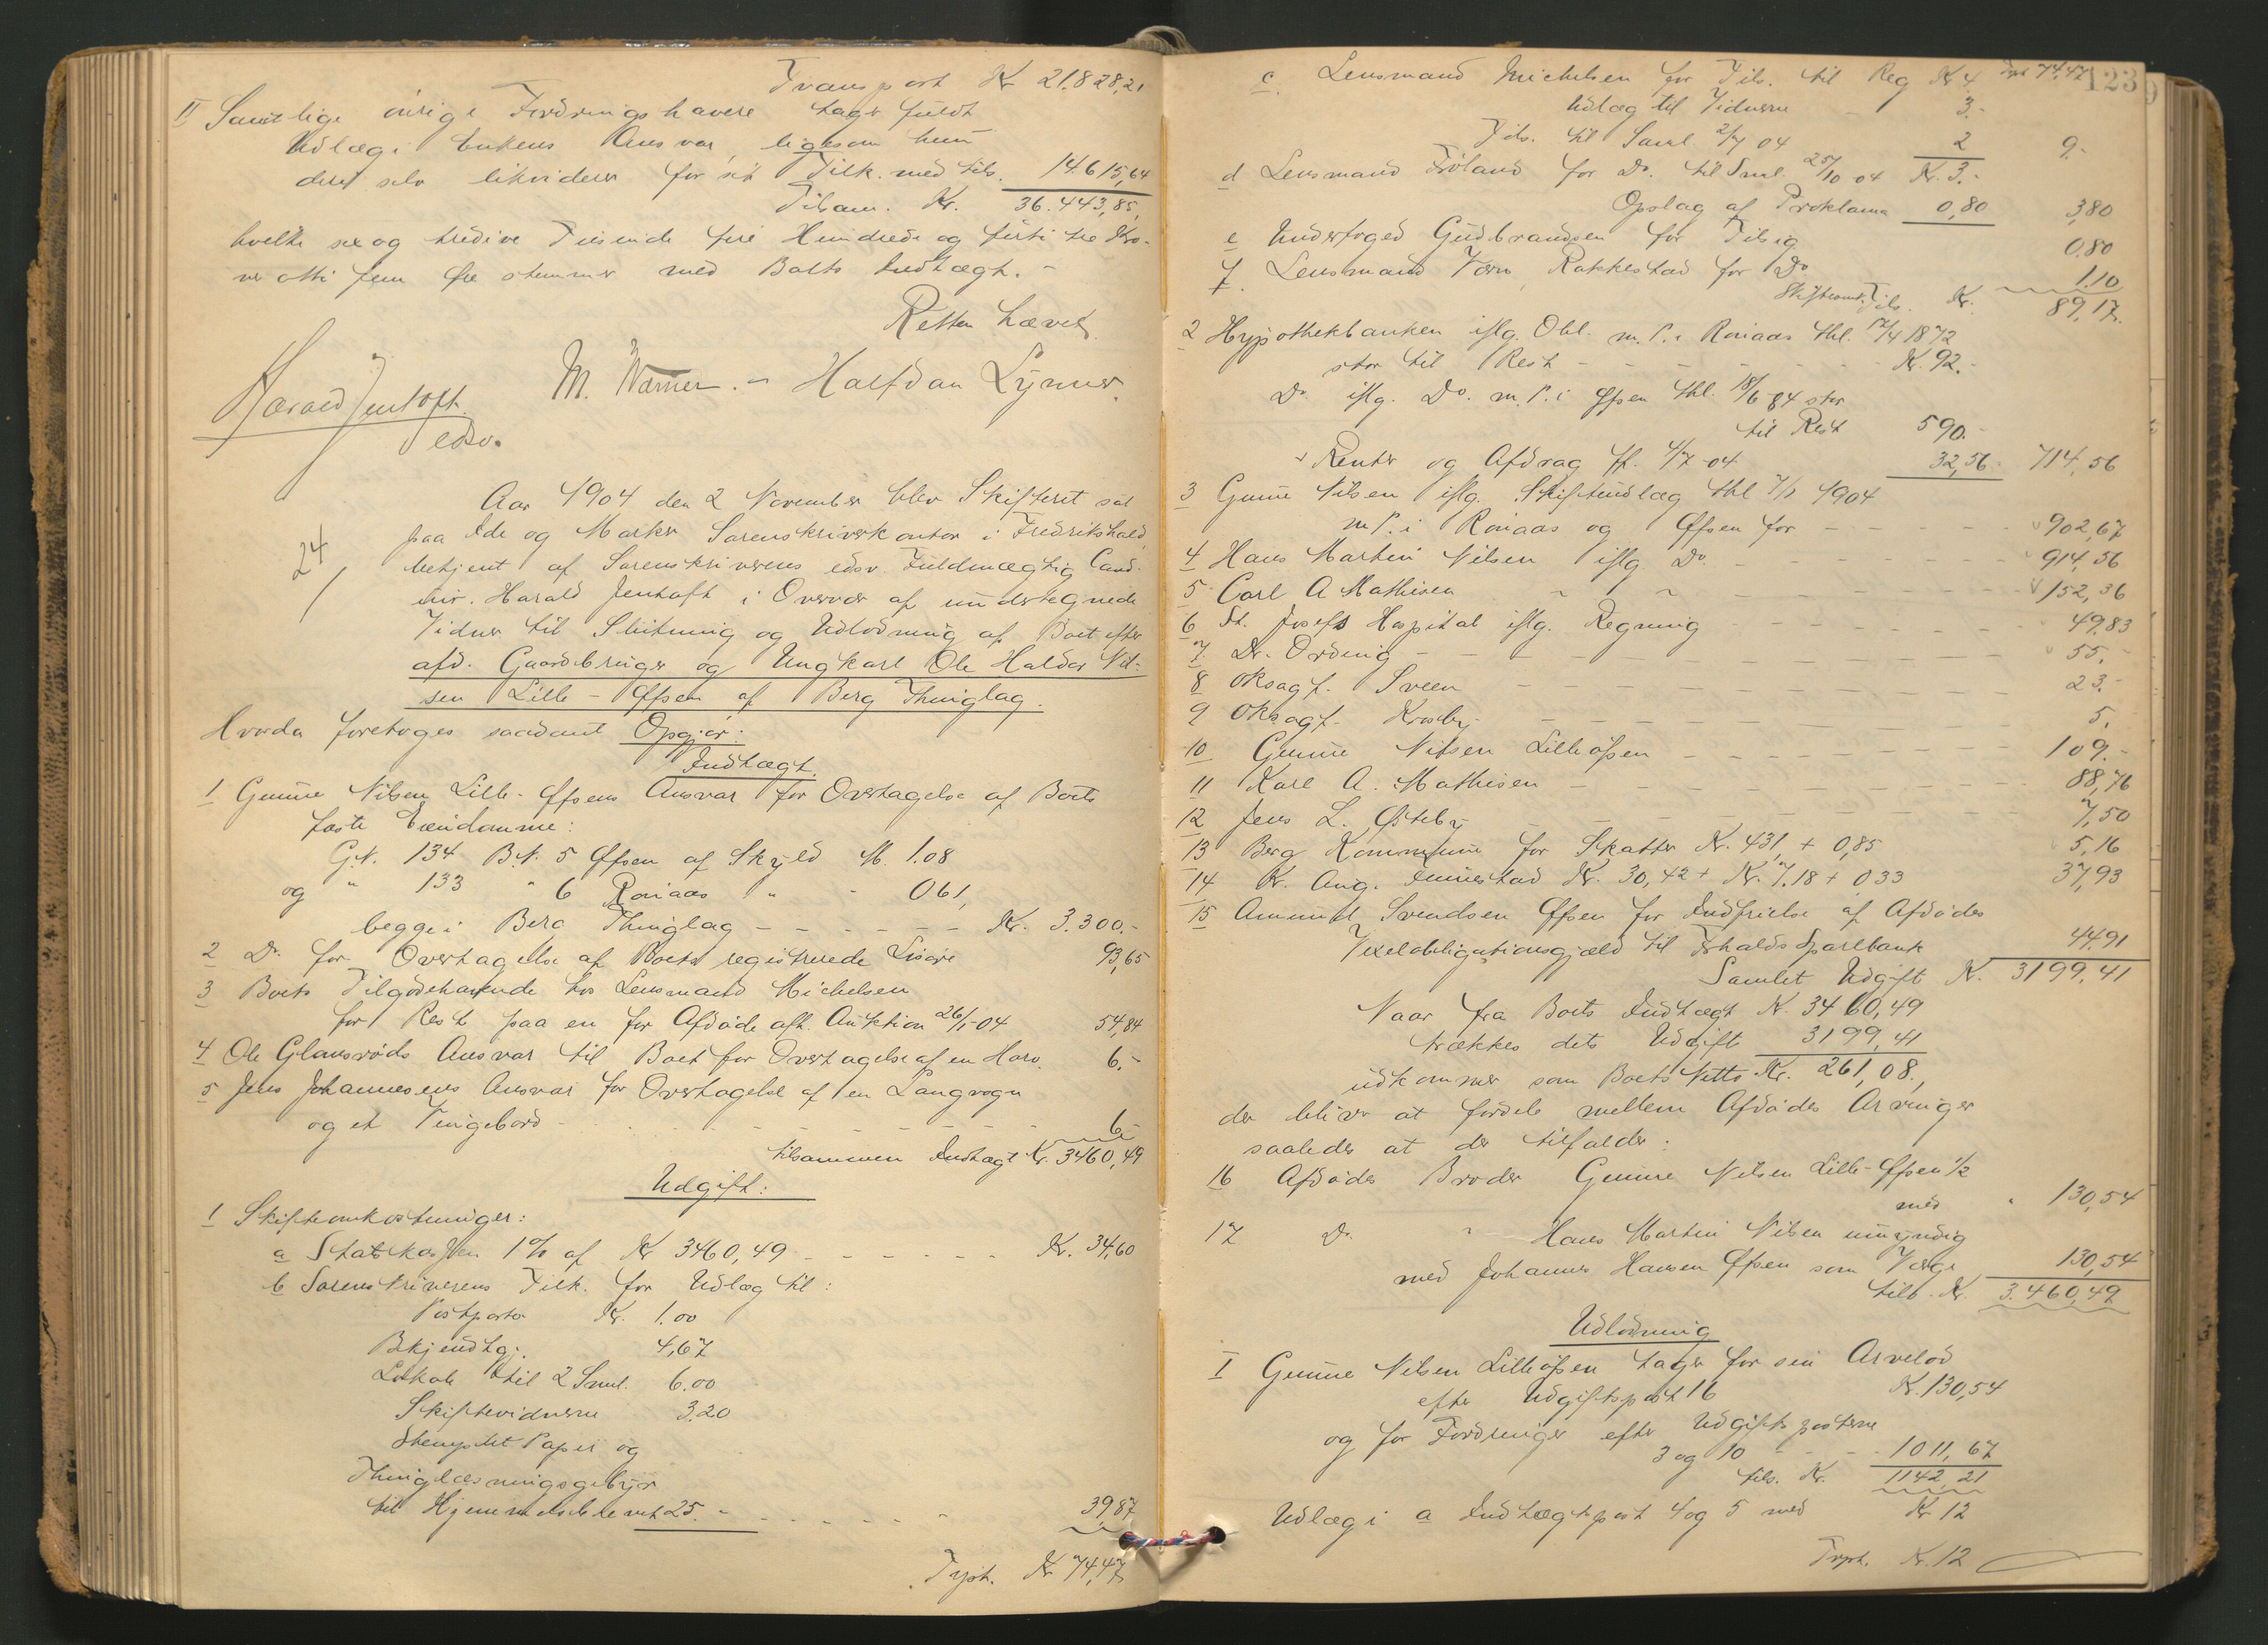 Transport Kr 21.828,21
II Samtlige øvrige Fordringshavere tager fuldt
Udlæg i Enkens Ansvar, ligesom hun
selv likviderer for sit Tilk. med tils. 14.615,64
Tilsam. Kr. 36.443,85,
hvilke sex og tredive Tusinde fire Hundrede og firti tre Kro-
ner otti fem Øre stemmer med Boets Indtægt. -
Retten hævet
M. Warner. - Halfdan Lynner.
Harald Jentoft
edsv.
Aar 1904 den 2 November blev Skifteret sat
paa Ide og Marker Sorenskriverkontor i Fredrikshald,
24 betjent af Sorenskriverens edsv Fuldmægtig Cand.
jur. Harald Jentoft i Overvær af undertegnede
Vidner til Slutning og Udlodning af Boet efter
afd. Gaardbruger og Ungkarl Ole Haldor Nil-
sen Lille-Øfsen af Berg Thinglag.
Hvorda foretoges saadant Opgjør:
Indtægt.
1 Gunne Nilsen Lille-Øfsens Ansvar for Overtagelse af Boets
faste Eiendomme:
G.N. 134 B.N. 5 Øfsen af Skyld M. 1.08
og " 133 " 6 Roviaas " " 0 61,
begge i Berg Thinglag - - - - - - Kr. 3.300.-
2 Do for Overtagelse af Boets registrerede Løsøre 93,65
3 Boets Tilgodehavende hos Lensmand Michelsen
for Rest paa en for Afdøde afh. Auktion 26/1-04 54,84
4 Ole Glansrøds Ansvar til Boet for Overtagelse af en Harv. 6.-
5 Jens Johannesens Ansvar for Overtagelse af en Langvogn
og et Vingebord - - - - - - - - - 6.-
tilsammen Indtægt Kr. 3460,49
Udgift:
1 Skifteomkostninger:
a Statskassen 1% af Kr 3460,49 - - - - - - Kr. 34,60
b Sorenskriverens Tilk. for Udlæg til:
Postporto Kr. 1.00
Bekjendtgj. 4,67
Lokale til 2 Saml. 6.00
Skiftevidnerne 3.20
Stemplet Papir og
Thinglæsningsgebyr
til Hjemmelsdokumet 25.- - - - - - 39,87
Trpt. Kr 74,47
123
Trpt 74,47
c. Lensmand Michelsen for Tils. til Reg Kr 4
Udlæg til Vidnerne - 3.-
Tils. til Saml. 2/7 04 2 9.-
d Lensmand Frøland for Do. til Saml. 25/10 04 Kr. 3.-
Opslag af Proklama 0,80 3,80
e Underfoged Gudbrandsen for Tilsig 0.80
f. LensmandVærn, Rakkestad for Do 1.10
Skifteomk. Tils. Kr. 89,17.
2 Hypothekbanken iflg. Obl. m. P. i Roviaas thl. 17/4 1872
stor til Rest - - - - - - Kr. 92.-
Do iflg. Do. m. P. i Øfsen thl. 18/6 84 stor
til Rest 590.-
Renter og Afdrag ff. 4/7-04 32,56 714,56
3 Gunne Nilsen iflg. Skifteudlæg thl 7/1 1904
m P. i Roviaas og Øfsen for - - - - - 902,67
4 Hans Martin Nilsen iflg Do - - - - - - 914,56
5 Carl A Mathisen " " - - - - - - 152,36
6 St. Josefs Hospital iflg. Regning - - - - - 49.83
7 Dr. Ording - - - - - - - - 55.-
8 Oksagf. Sveen - - - - - - - 23.-
9 Oksagf. Krosby - - - - - - - 5.
10 Gunne Nilsen Lilleøfsen - - - - - - 109.-
11 Karl A. Mathisen - - - - - - - 88,76
12 Jens L. Østeby - - - - - - - 7,50
13 Berg Kommune for Skatter Kr. 431, + 0,85 5,16
14 Kr. Aug. Tunestad Kr. 30,42 + Kr. 7.18 + 0 33 37,93
15 Amund Svendsen Øfsen for Indfrielse af Afdødes
Vexelobligationsgjæld til Fhalds Sparebank 44.91
Samlet Udgift Kr. 3199,41
Naar fra Boets Indtægt Kr. 3460,49
trækkes dets Udgift 3199,41
udkommer som Boets Netto Kr. 261,08.,
der bliver at fordele mellem Afdødes Arvinger
saaledes at der tilfalder:
16 Afdødes Broder Gunne Nilsen Lille-Øfsen 1/2
med " 130,54
17 Do. " Hans Martin Nilsen umyndig
med Johannes Hansen Øfsen som Værge 130,54
tils. Kr. 3.460,49
Udlodning
I Gunne Nilsen Lilleøfsen tager for sin Arvelod
efter Udgiftspost 16 Kr. 130,54
og for Fordringer efter Udgiftsposterne
3 og 10 - - - 1011,67
tils. Kr. 1142,21
Udlæg i a Indtægtspost 4 og 5 med Kr 12
Trpt. Kr. 12